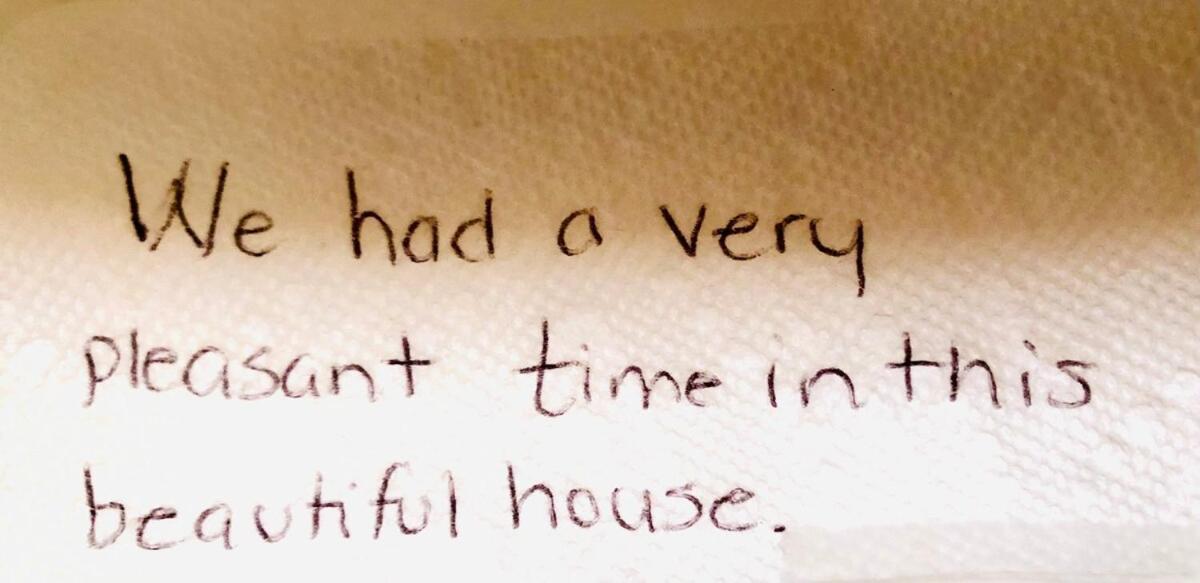 We had a very
pleasant time in this
beautiful house.